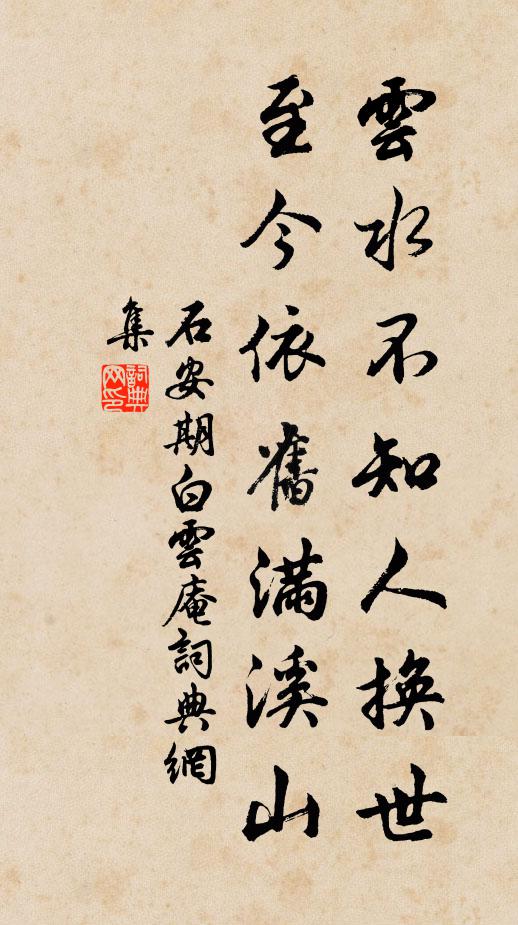 雲水不知人換世
至今依舊滿溪山
石安期白雲庵詞典網
集
詞典网印